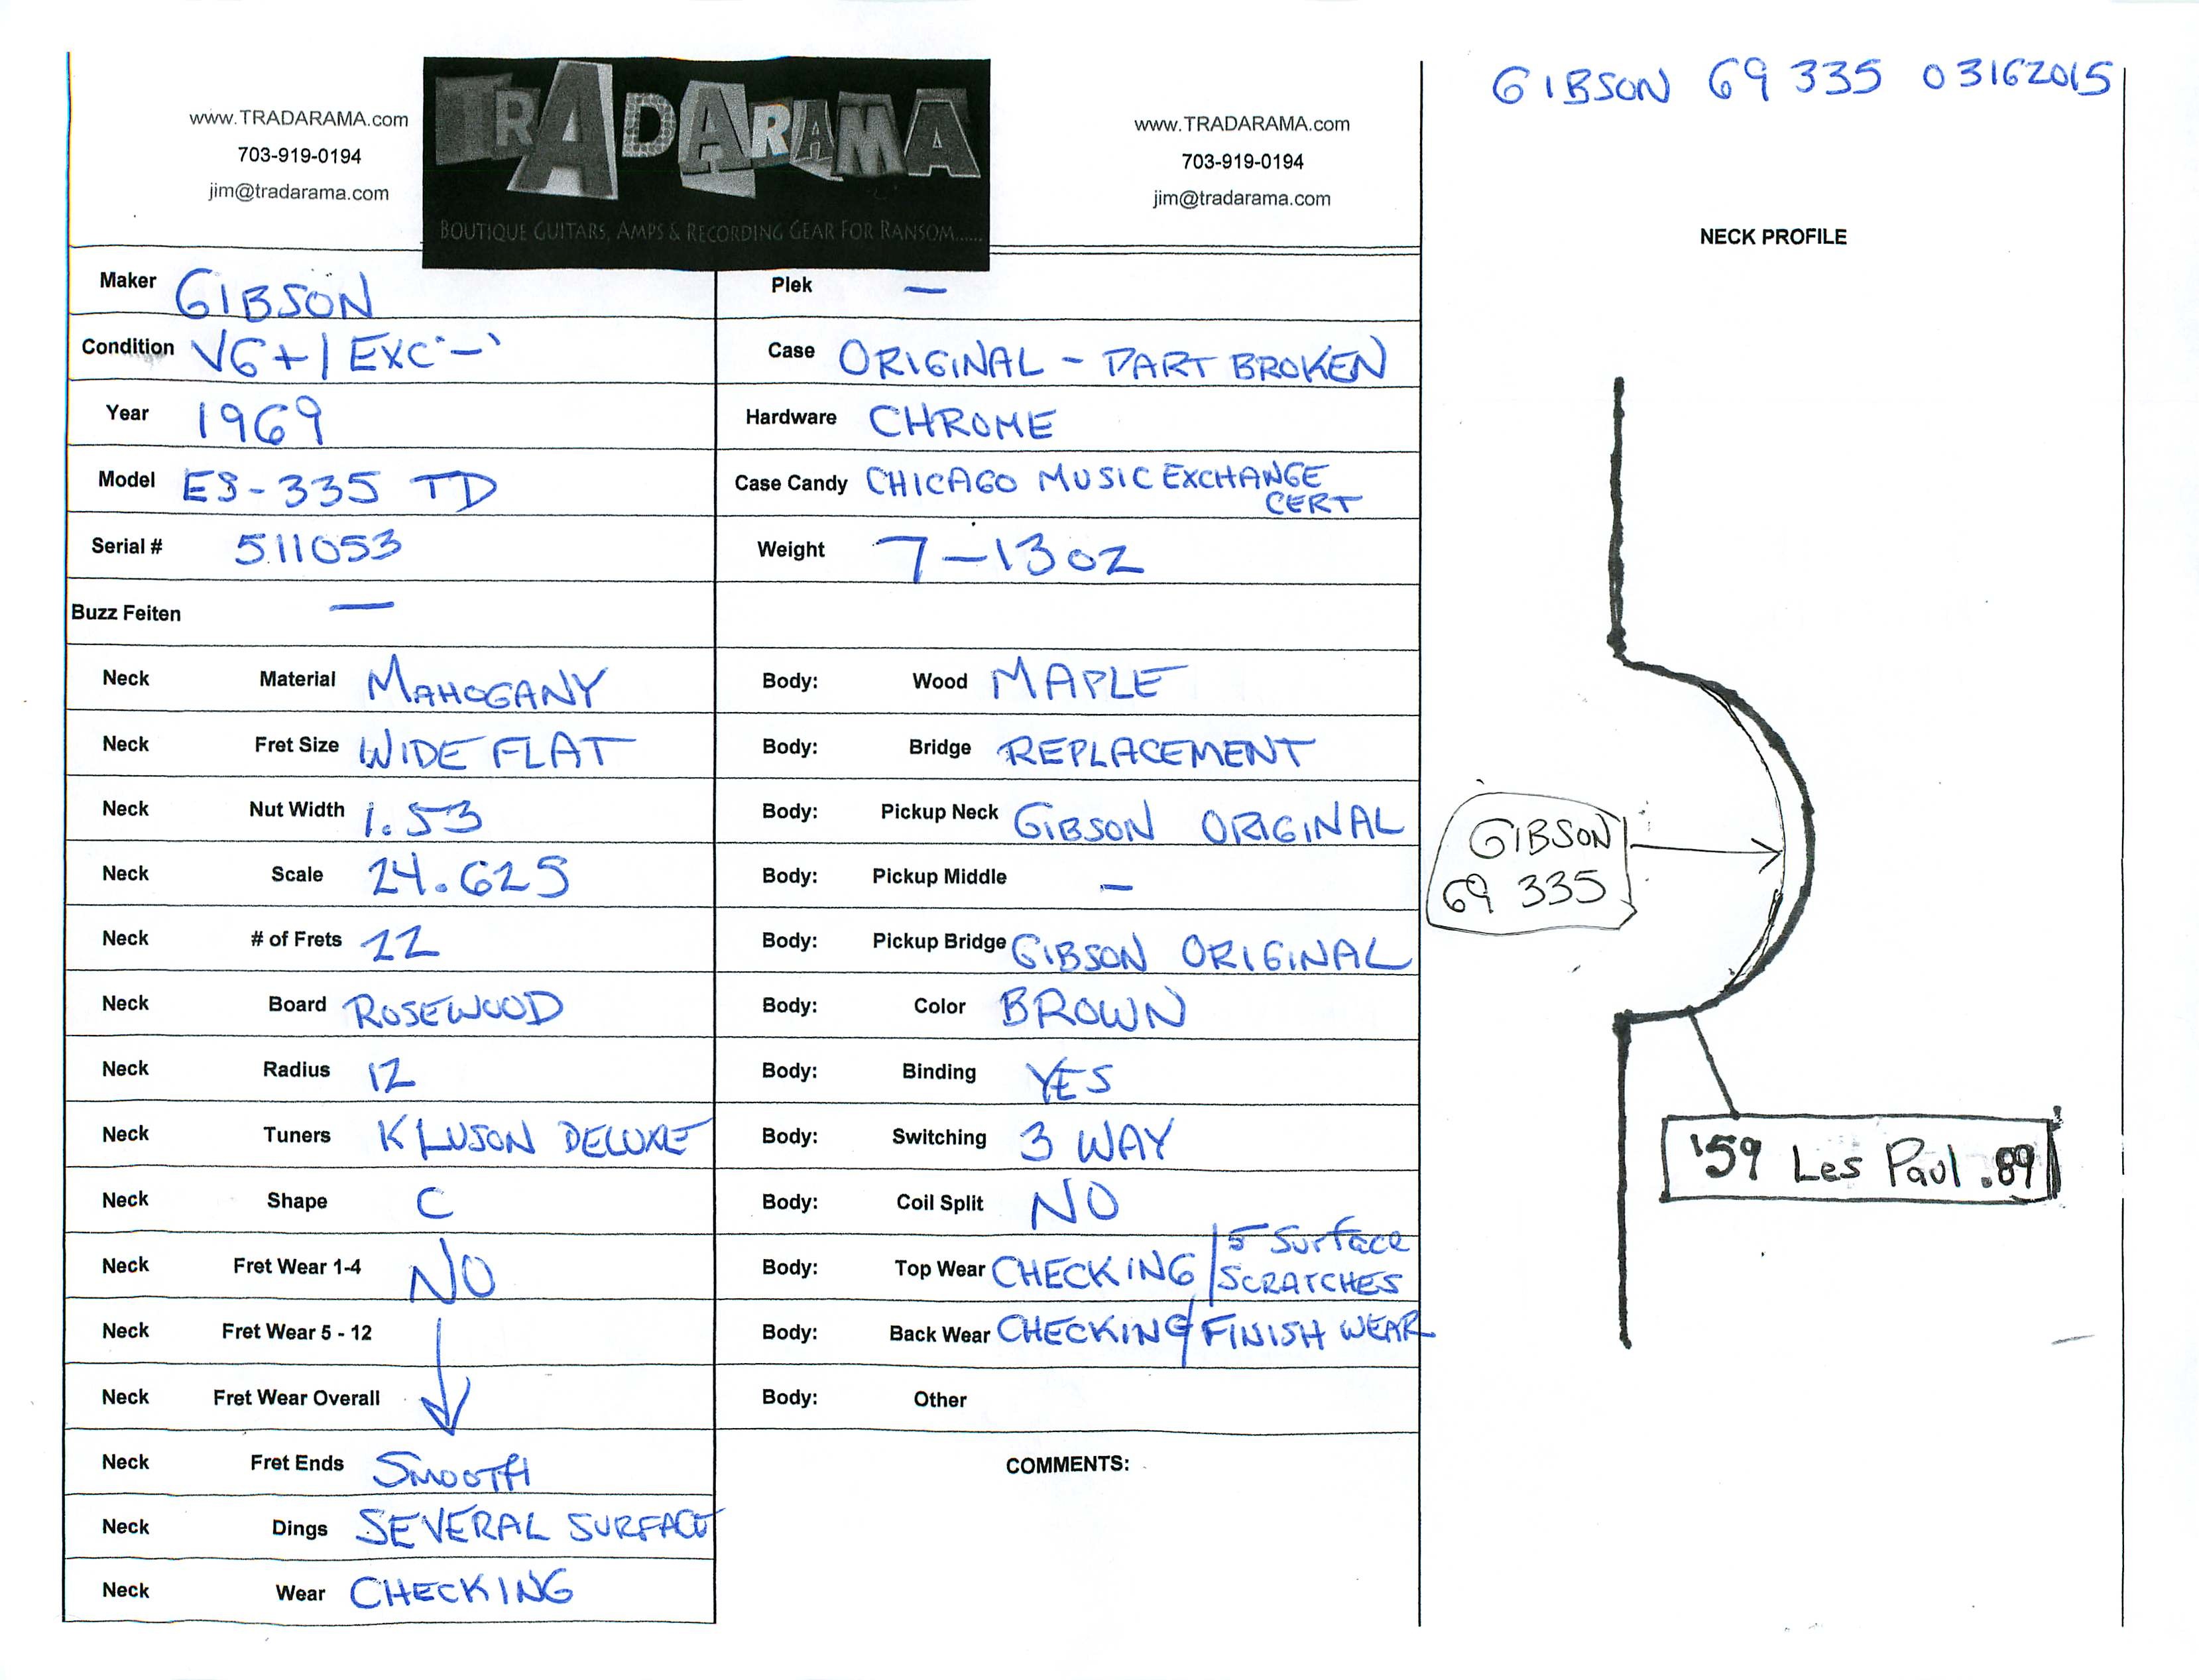 www.TRADARAMA.com
703-919-0194
jim@tradarama.com
TRADARAMA
BOUTIQUE GUITARS, AMPS & RECORDING GEAR FOR RANSOM......
www.TRADARAMA.com
703-919-0194
jim@tradarama.com
Maker GIBSON
Condition VG+/EXC"-"
Year 1969
Model ES-335 TD
Serial # 511053
Buzz Feiten —
Neck Material MAHOGANY
Neck Fret Size WIDE FLAT
Neck Nut Width 1.53
Neck Scale 24.625
Neck # of Frets 22
Neck Board ROSEWOOD
Neck Radius 12
Neck Tuners KLUSON DELUXE
Neck Shape C
Neck Fret Wear 1-4 NO
Neck Fret Wear 5 - 12
Neck Fret Wear Overall
Neck Fret Ends SMOOTH
Neck Dings SEVERAL SURFACE
Neck Wear CHECKING
Plek —
Case ORIGINAL - PART BROKEN
Hardware CHROME
Case Candy CHICAGO MUSIC EXCHANGE
CERT
Weight 7-13 oz
Body: Wood MAPLE
Body: Bridge REPLACEMENT
Body: Pickup Neck GIBSON ORIGINAL
Body: Pickup Middle —
Body: Pickup Bridge GIBSON ORIGINAL
Body: Color BROWN
Body: Binding YES
Body: Switching 3 WAY
Body: Coil Split NO
Body: Top Wear CHECKING / 5 Surface
SCRATCHES
Body: Back Wear CHECKING / FINISH WEAR
Body: Other
COMMENTS:
GIBSON 69 335 03162015
NECK PROFILE
GIBSON
69 335
'59 Les Paul .89